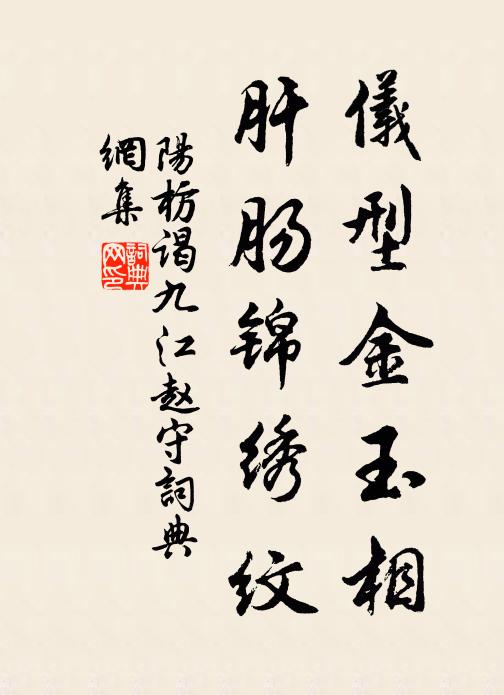 儀型金玉相
肝肠锦绣纹
陽枋谒九江赵守詞典
網集
詞典网印